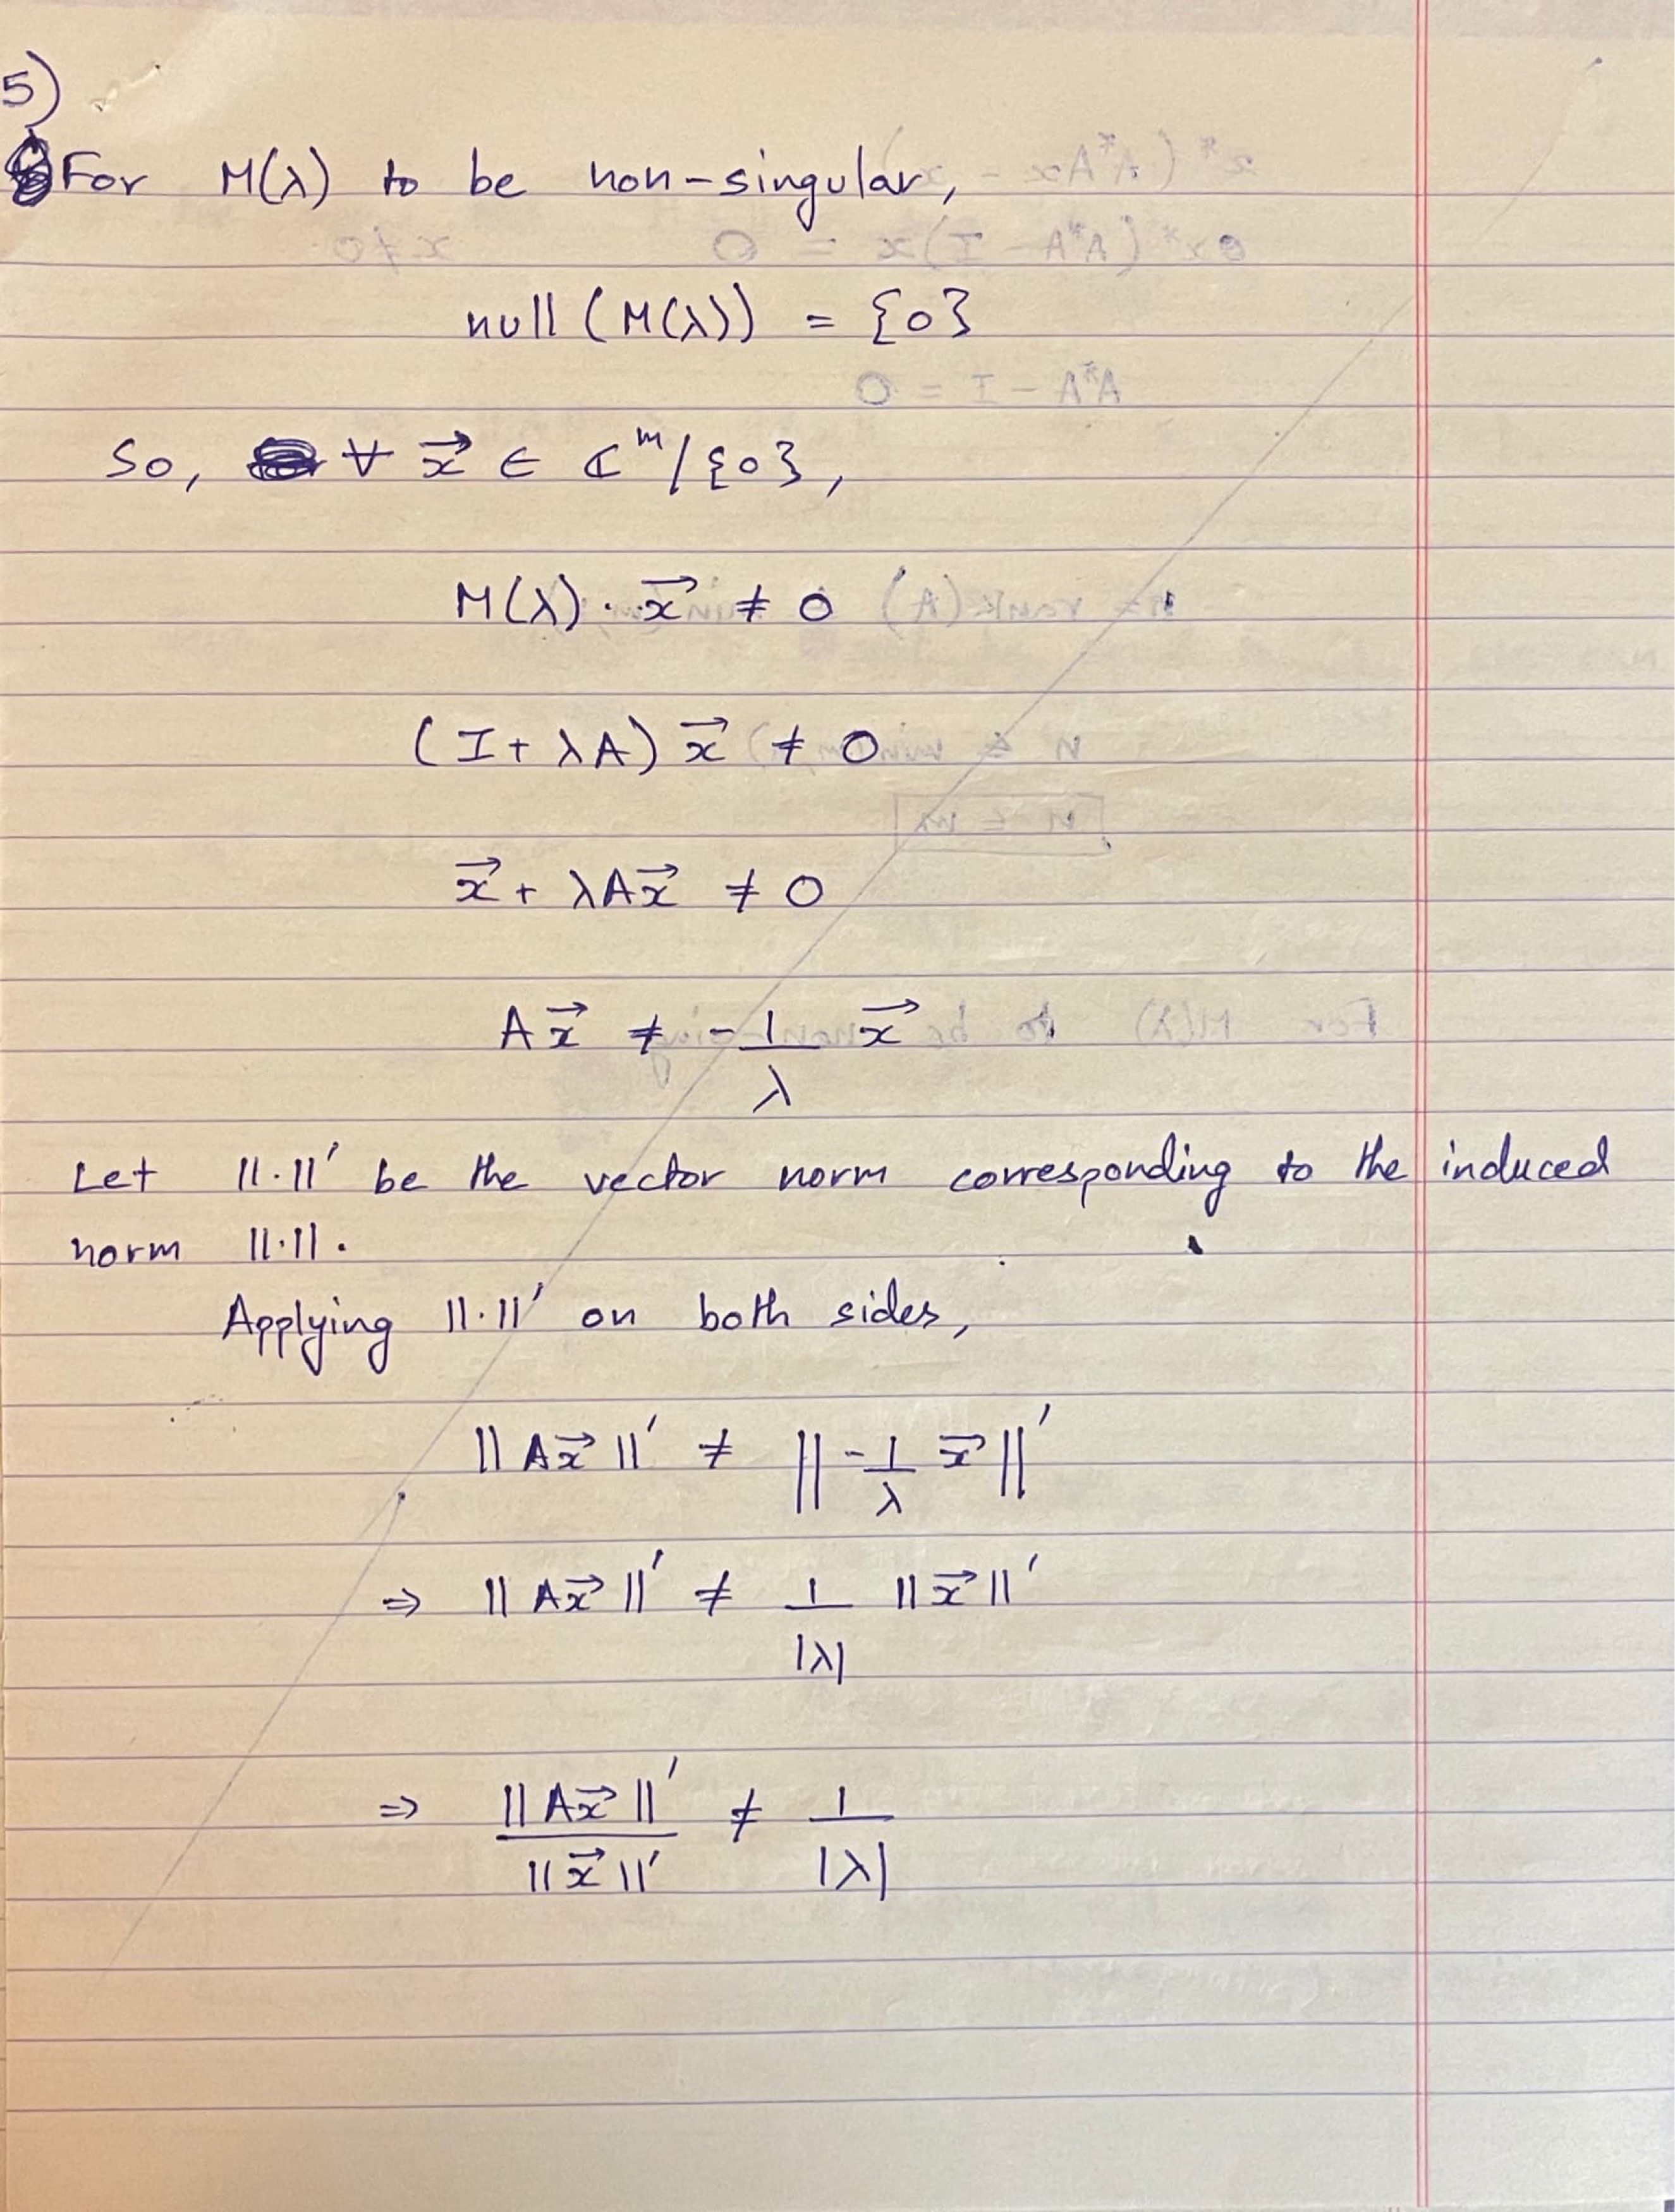 5)
For M(λ) to be non-singular,
null (M(λ)) = {0}
So, ∀ x⃗ ∈ ℂᵐ/{0},
M(λ) · x⃗ ≠ 0
(I + λA) x⃗ ≠ 0
x⃗ + λAx⃗ ≠ 0
Ax⃗ ≠ -1/λ x⃗
Let ||·||′ be the vector norm corresponding to the induced
norm ||·||.
Applying ||·||′ on both sides,
||Ax⃗||′ ≠ ||-1/λ x⃗||′
⇒ ||Ax⃗||′ ≠ 1/|λ| ||x⃗||′
⇒ ||Ax⃗||′/||x⃗||′ ≠ 1/|λ|